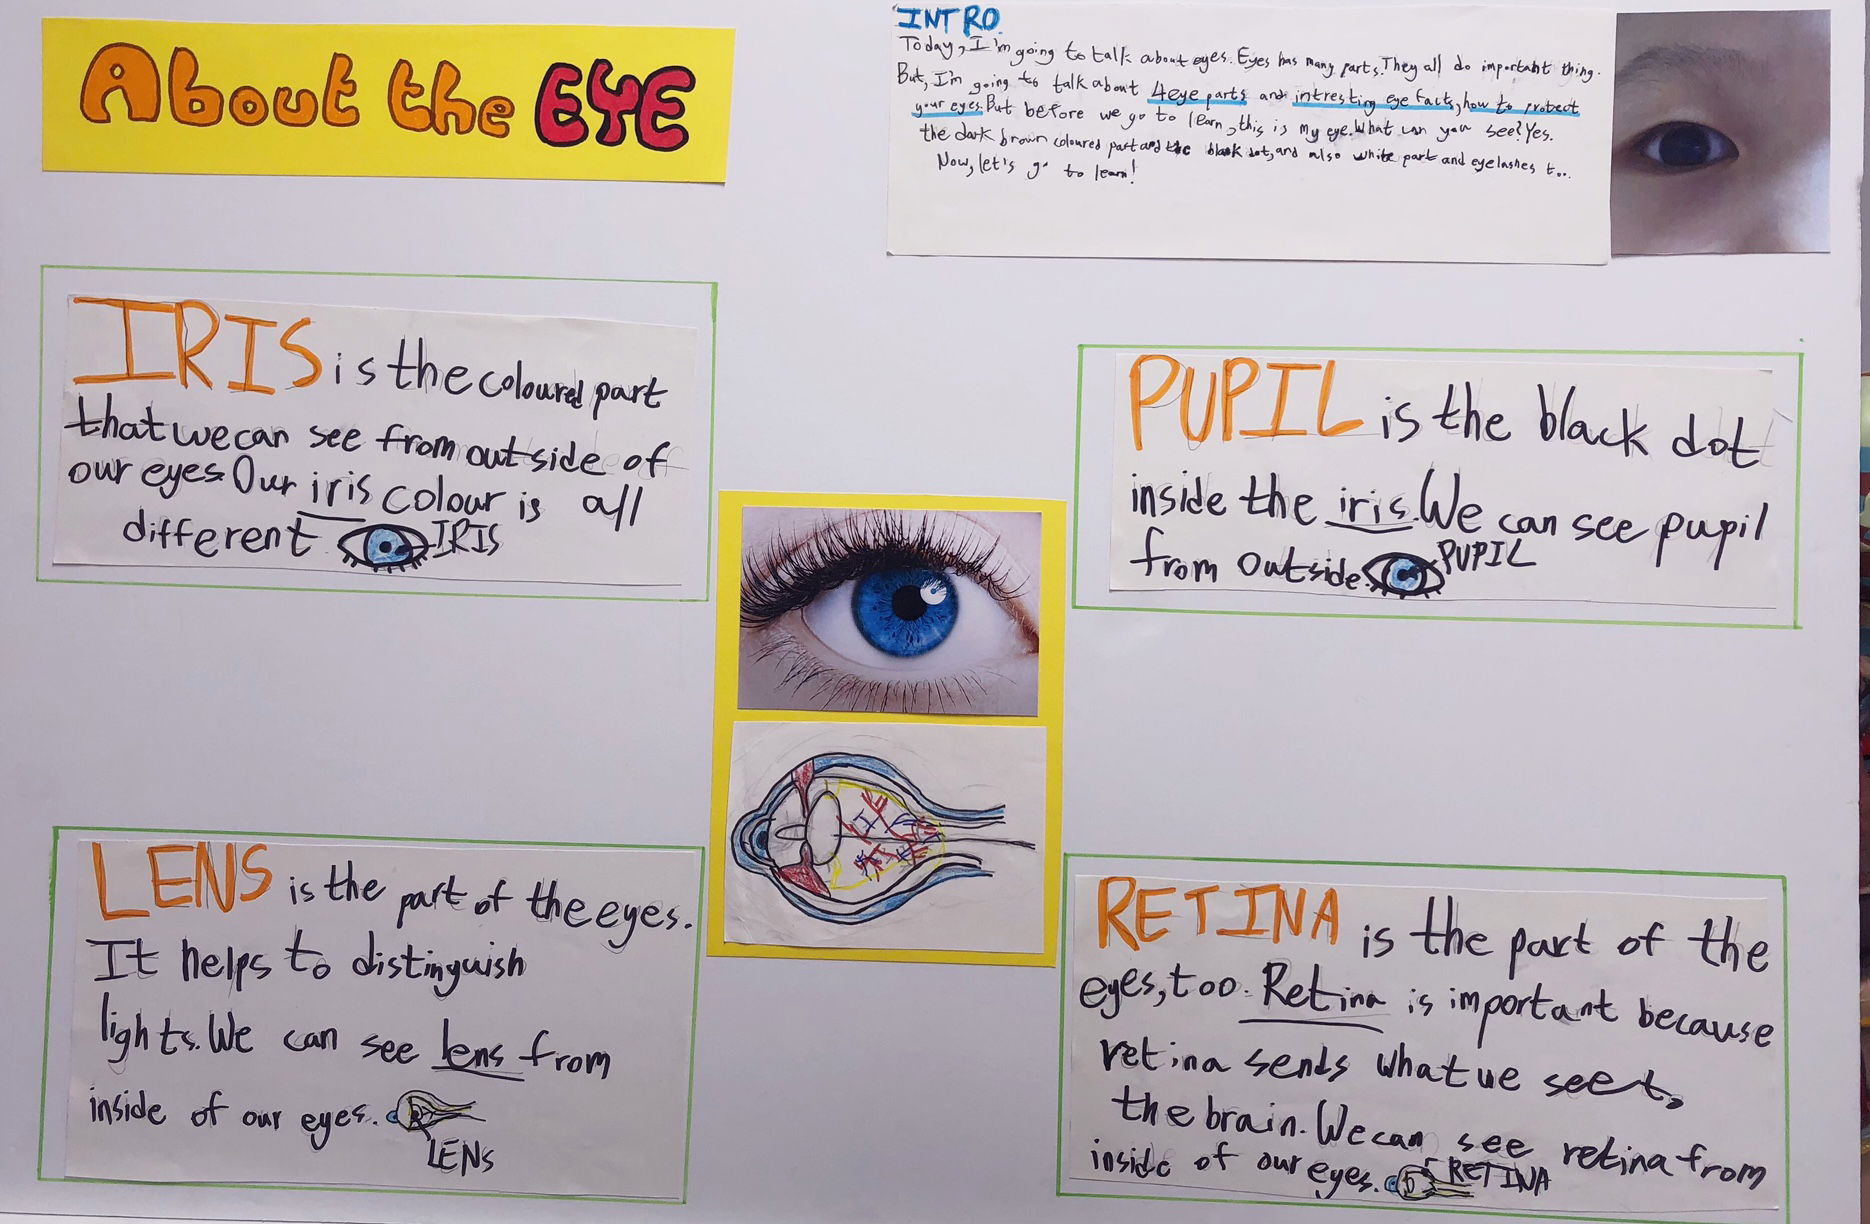 About the EYE
INTRO
Today, I'm going to talk about eyes. Eyes has many parts. They all do important thing.
But, I'm going to talk about 4 eye parts and intresting eye facts, how to protect
your eyes. But before we go to learn, this is my eye. What can you see? Yes.
the dark brown coloured part and the black dot, and also white part and eyelashes t...
Now, let's go to learn!
IRIS is the coloured part
that we can see from outside of
our eyes. Our iris colour is all
different. IRIS
PUPIL is the black dot
inside the iris. We can see pupil
from outside. PUPIL
LENS is the part of the eyes.
It helps to distinguish
lights. We can see lens from
inside of our eyes.
LENS
RETINA is the part of the
eyes, too. Retina is important because
retina sends what we see to
the brain. We can see retina from
inside of our eyes. RETINA